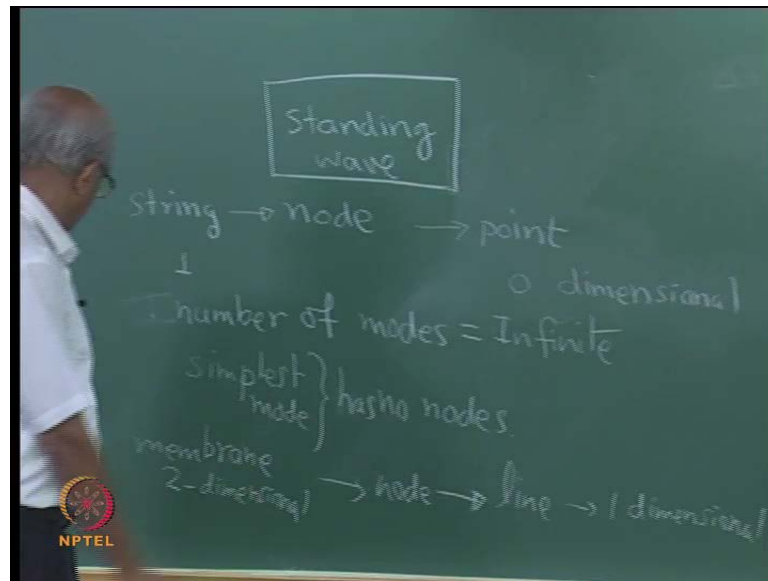 Standing
wave
string → node → point
1 0 dimensional
number of modes = Infinite
simplest
mode } has no nodes.
membrane
2-dimensional → node → line → 1 dimensional
NPTEL